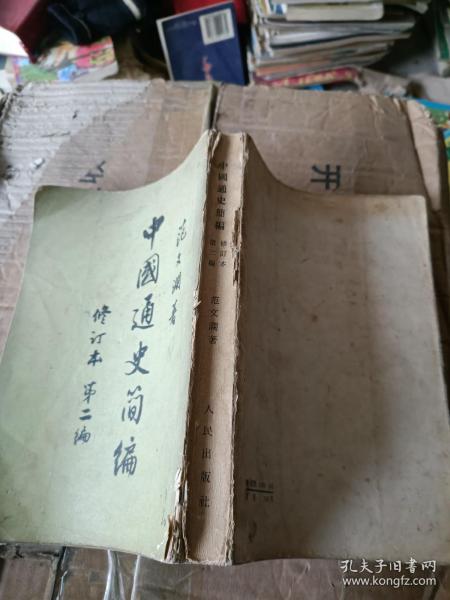 范文瀾著
中國通史简编
修订本 第二编
中國通史簡編
修訂本
第二編
范文瀾著
人民出版社
开
孔夫子旧书网
www.kongfz.com